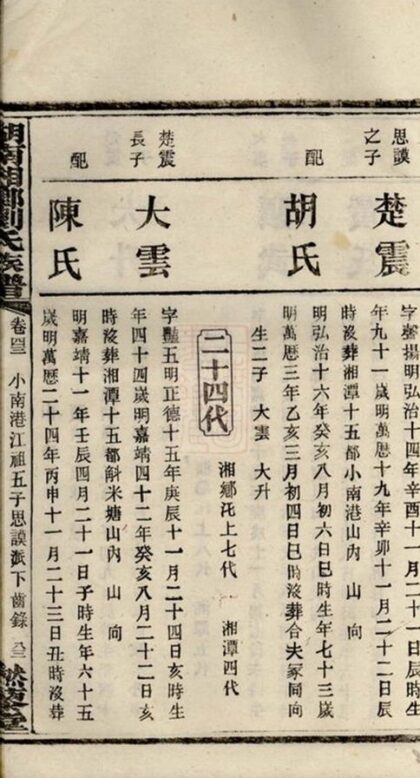 思謨之子
楚震
配
胡氏
字聲揚明弘治十四年辛酉十一月
年九十一歲明萬曆十九年辛卯十一月二十二日辰
時沒葬湘潭十五都小南港山內 山 向
明弘治十六年癸亥八月初六日巳時生年七十三歲
明萬曆三年乙亥三月初四日巳時沒葬合夫冢同向
生二子 大雲 大升
二十四代
湘鄉沱上七代 湘潭四代
楚震長子
大雲
配
陳氏
字豔五明正德十五年庚辰十一月二十四日亥時生
年四十四歲明嘉靖四十二年癸亥八月二十二日亥
時沒葬湘潭十五都斛米塘山內 山 向
明嘉靖十一年壬辰四月二十一日子時生年六十五
歲明萬曆二十四年丙申十一月二十三日丑時沒葬
湖南湘鄉劉氏族譜
小南港江祖五子思謨派下齒錄